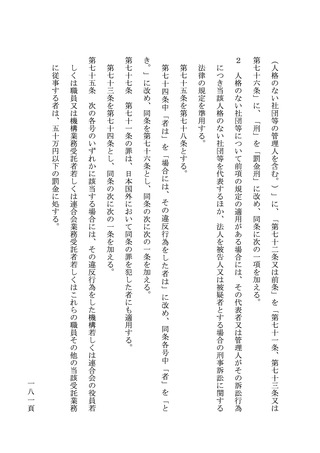 （人格のない社団等の管理人を含む。）」に、「第七十二条又は前条」を「第七十一条、第七十三条又は
第七十六条」に、「刑」を「罰金刑」に改め、同条に次の一項を加える。
２　人格のない社団等について前項の規定の適用がある場合には、その代表者又は管理人がその訴訟行為
につき当該人格のない社団等を代表するほか、法人を被告人又は被疑者とする場合の刑事訴訟に関する
法律の規定を準用する。
第七十五条を第七十八条とする。
第七十四条中「者は」を「場合には、その違反行為をした者は」に改め、同条各号中「者」を「と
き。」に改め、同条を第七十六条とし、同条の次に次の一条を加える。
第七十七条　第七十一条の罪は、日本国外において同条の罪を犯した者にも適用する。
第七十三条を第七十四条とし、同条の次に次の一条を加える。
第七十五条　次の各号のいずれかに該当する場合には、その違反行為をした機構若しくは連合会の役員若
しくは職員又は機構業務受託者若しくは連合会業務受託者若しくはこれらの職員その他の当該受託業務
に従事する者は、五十万円以下の罰金に処する。
一八一頁